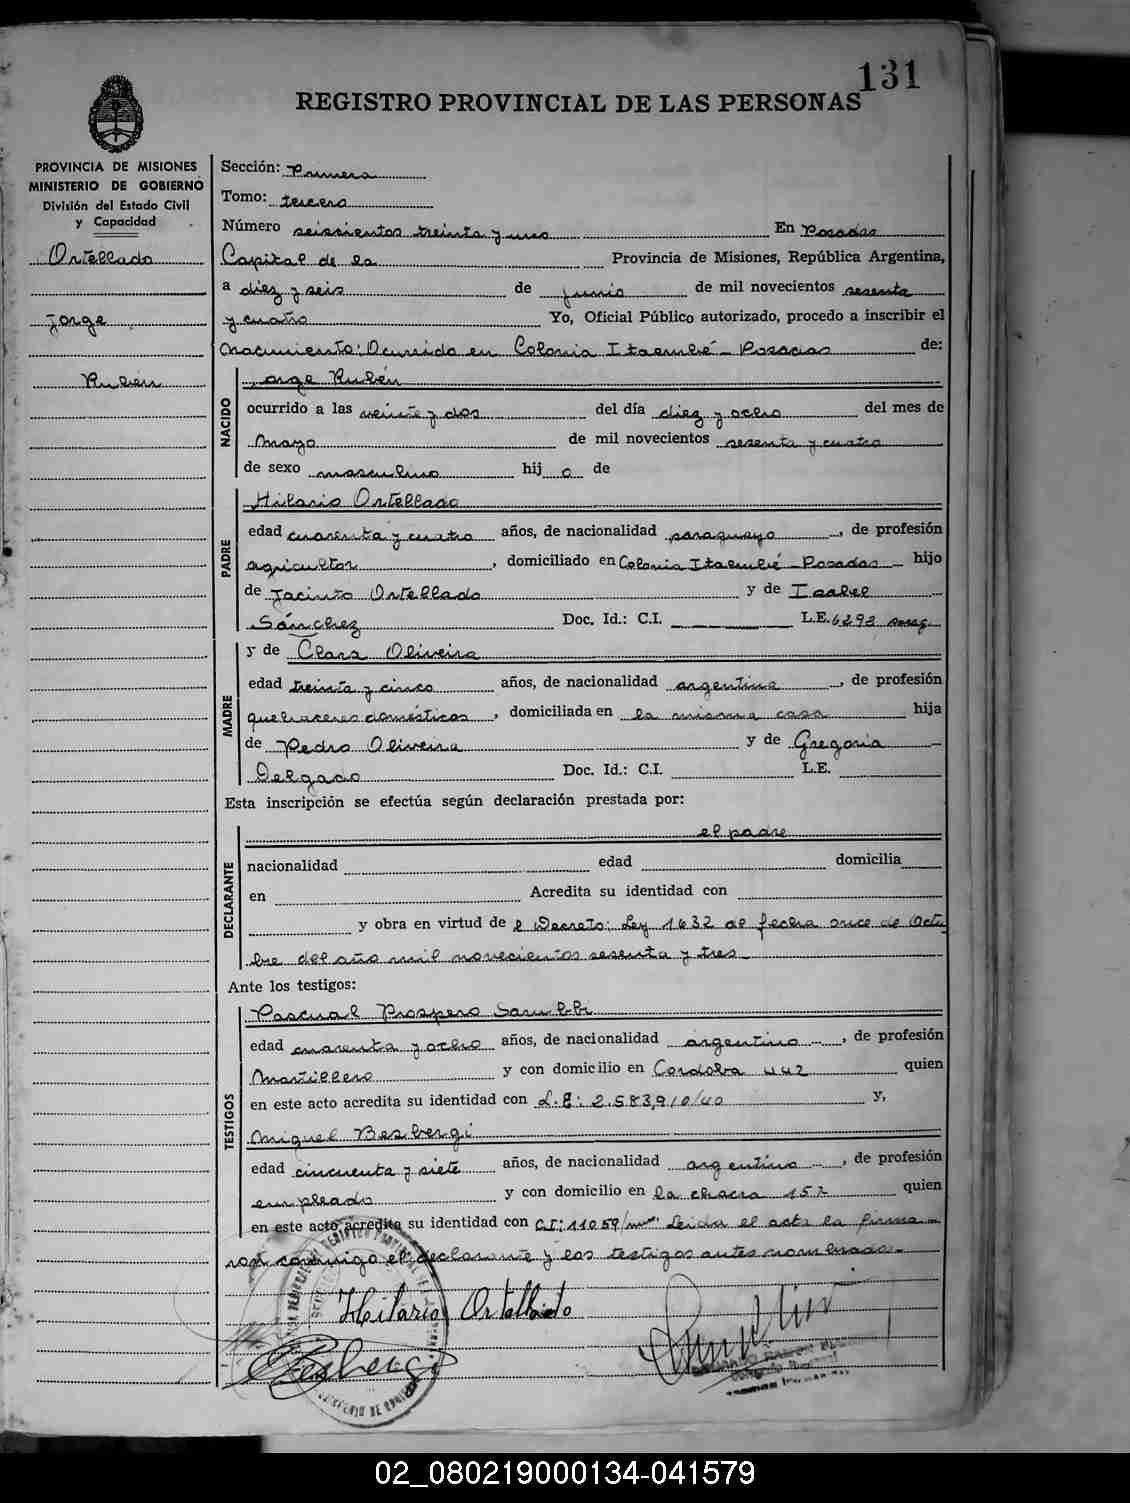 131
REGISTRO PROVINCIAL DE LAS PERSONAS
PROVINCIA DE MISIONES
MINISTERIO DE GOBIERNO
División del Estado Civil
y Capacidad
Ortellado
Jorge
Rubén
Sección: Primera
Tomo: tercero
Número seiscientos treinta y uno En Posadas
Capital de la Provincia de Misiones, República Argentina,
a diez y seis de junio de mil novecientos sesenta
y cuatro Yo, Oficial Público autorizado, procedo a inscribir el
nacimiento: Ocurrido en Colonia Itaembé - Posadas de:
NACIDO
Jorge Rubén
ocurrido a las veinte y dos del día diez y ocho del mes de
Mayo de mil novecientos sesenta y cuatro
de sexo masculino hij o de
PADRE
Hilario Ortellado
edad cuarenta y cuatro años, de nacionalidad paraguayo, de profesión
agricultor, domiciliado en Colonia Itaembé - Posadas - hijo
de Jacinto Ortellado y de Isabel
Sánchez Doc. Id.: C.I. L.E. 6293
MADRE
y de Clara Oliveira
edad treinta y cinco años, de nacionalidad argentina, de profesión
quehaceres domésticos, domiciliada en la misma casa hija
de Pedro Oliveira y de Gregoria
Delgado Doc. Id.: C.I. L.E.
Esta inscripción se efectúa según declaración prestada por:
DECLARANTE
el padre
nacionalidad edad domicilia
en Acredita su identidad con
y obra en virtud de l Decreto: Ley 1632 de fecha once de Octu
bre del año mil novecientos sesenta y tres
Ante los testigos:
TESTIGOS
Pascual Prospero
edad cuarenta y ocho años, de nacionalidad argentino, de profesión
Martillero y con domicilio en Cordoba 442 quien
en este acto acredita su identidad con L.E: 2.583,910/40 y,
Miguel Besbergi
edad cincuenta y siete años, de nacionalidad argentino, de profesión
empleado y con domicilio en la chacra 157 quien
en este acto acredita su identidad con C.I: 11059 Leida el acta la firma
ron conmigo el declarante y los testigos antes nombrados.
Hilario Ortellado
Besbergi
02_080219000134-041579